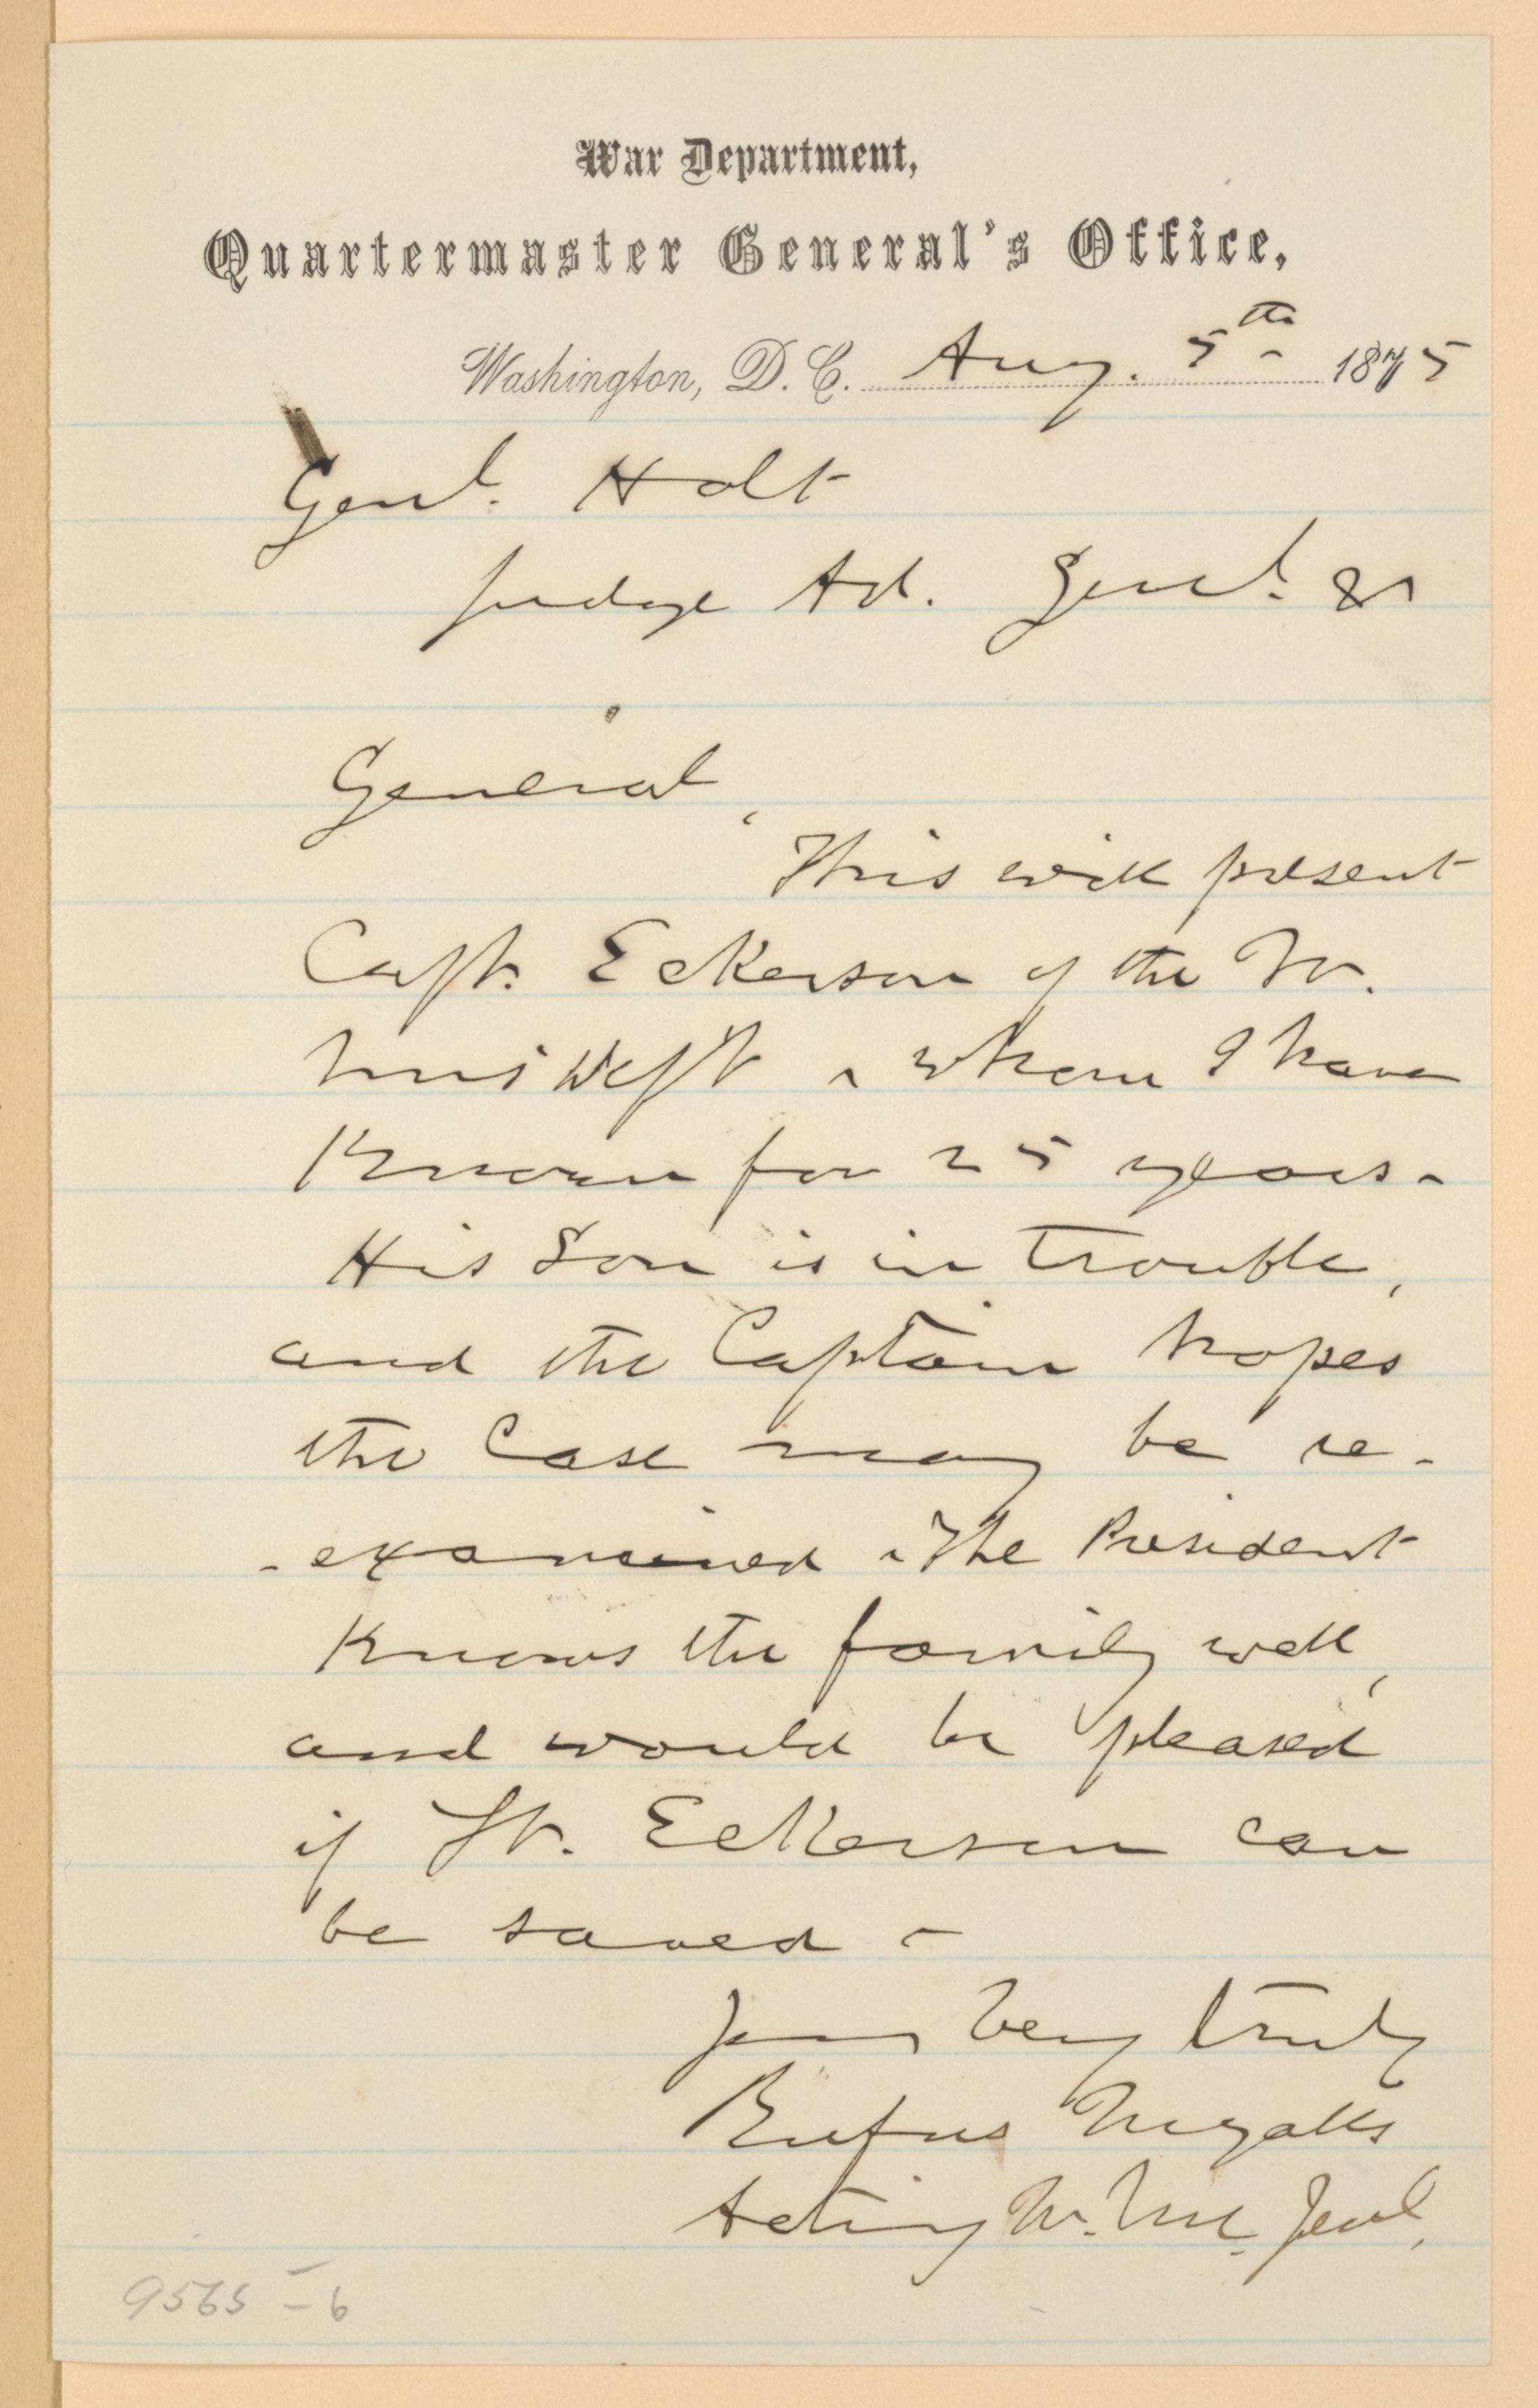 War Department,
Quartermaster General's Office,
Washington, D. C. Aug. 5th 1875
Genl. Holt
Judge Ad. Genl. &c
General,
This will present
Capt. Eckerson of the Qr.
Mrs Dept - whom I have
Known for 25 years -
His Son is in trouble,
and the Captain hopes
the Case may be re-
-examined - The President
Knows the family well,
and would be pleased
if Lt. Eckerson can
be saved -
Yours Very truly
Rufus Ingalls
Acting Qr. Mr. Genl,
9565 - 6